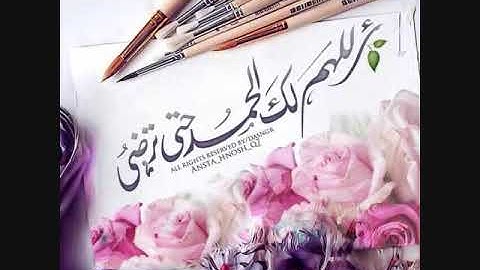 اللهم لك الحمد حتى ترضى
ALL RIGHTS RESERVED BY/DASNGR
ANSTA_HNOSH_QZ